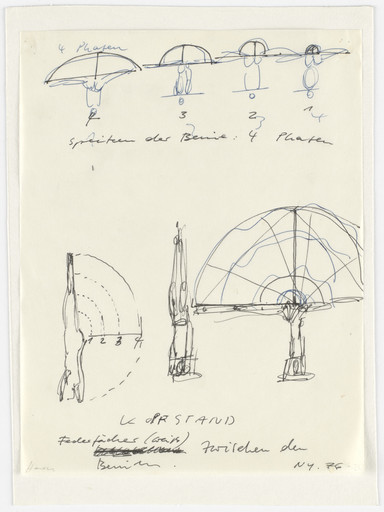 4 Phasen
3
2
4
spreizen der Beine: 4 Phasen
1 2 3 4
KOPFSTAND
Federfächer (weiß) zwischen den
Beinen.
NY. 76